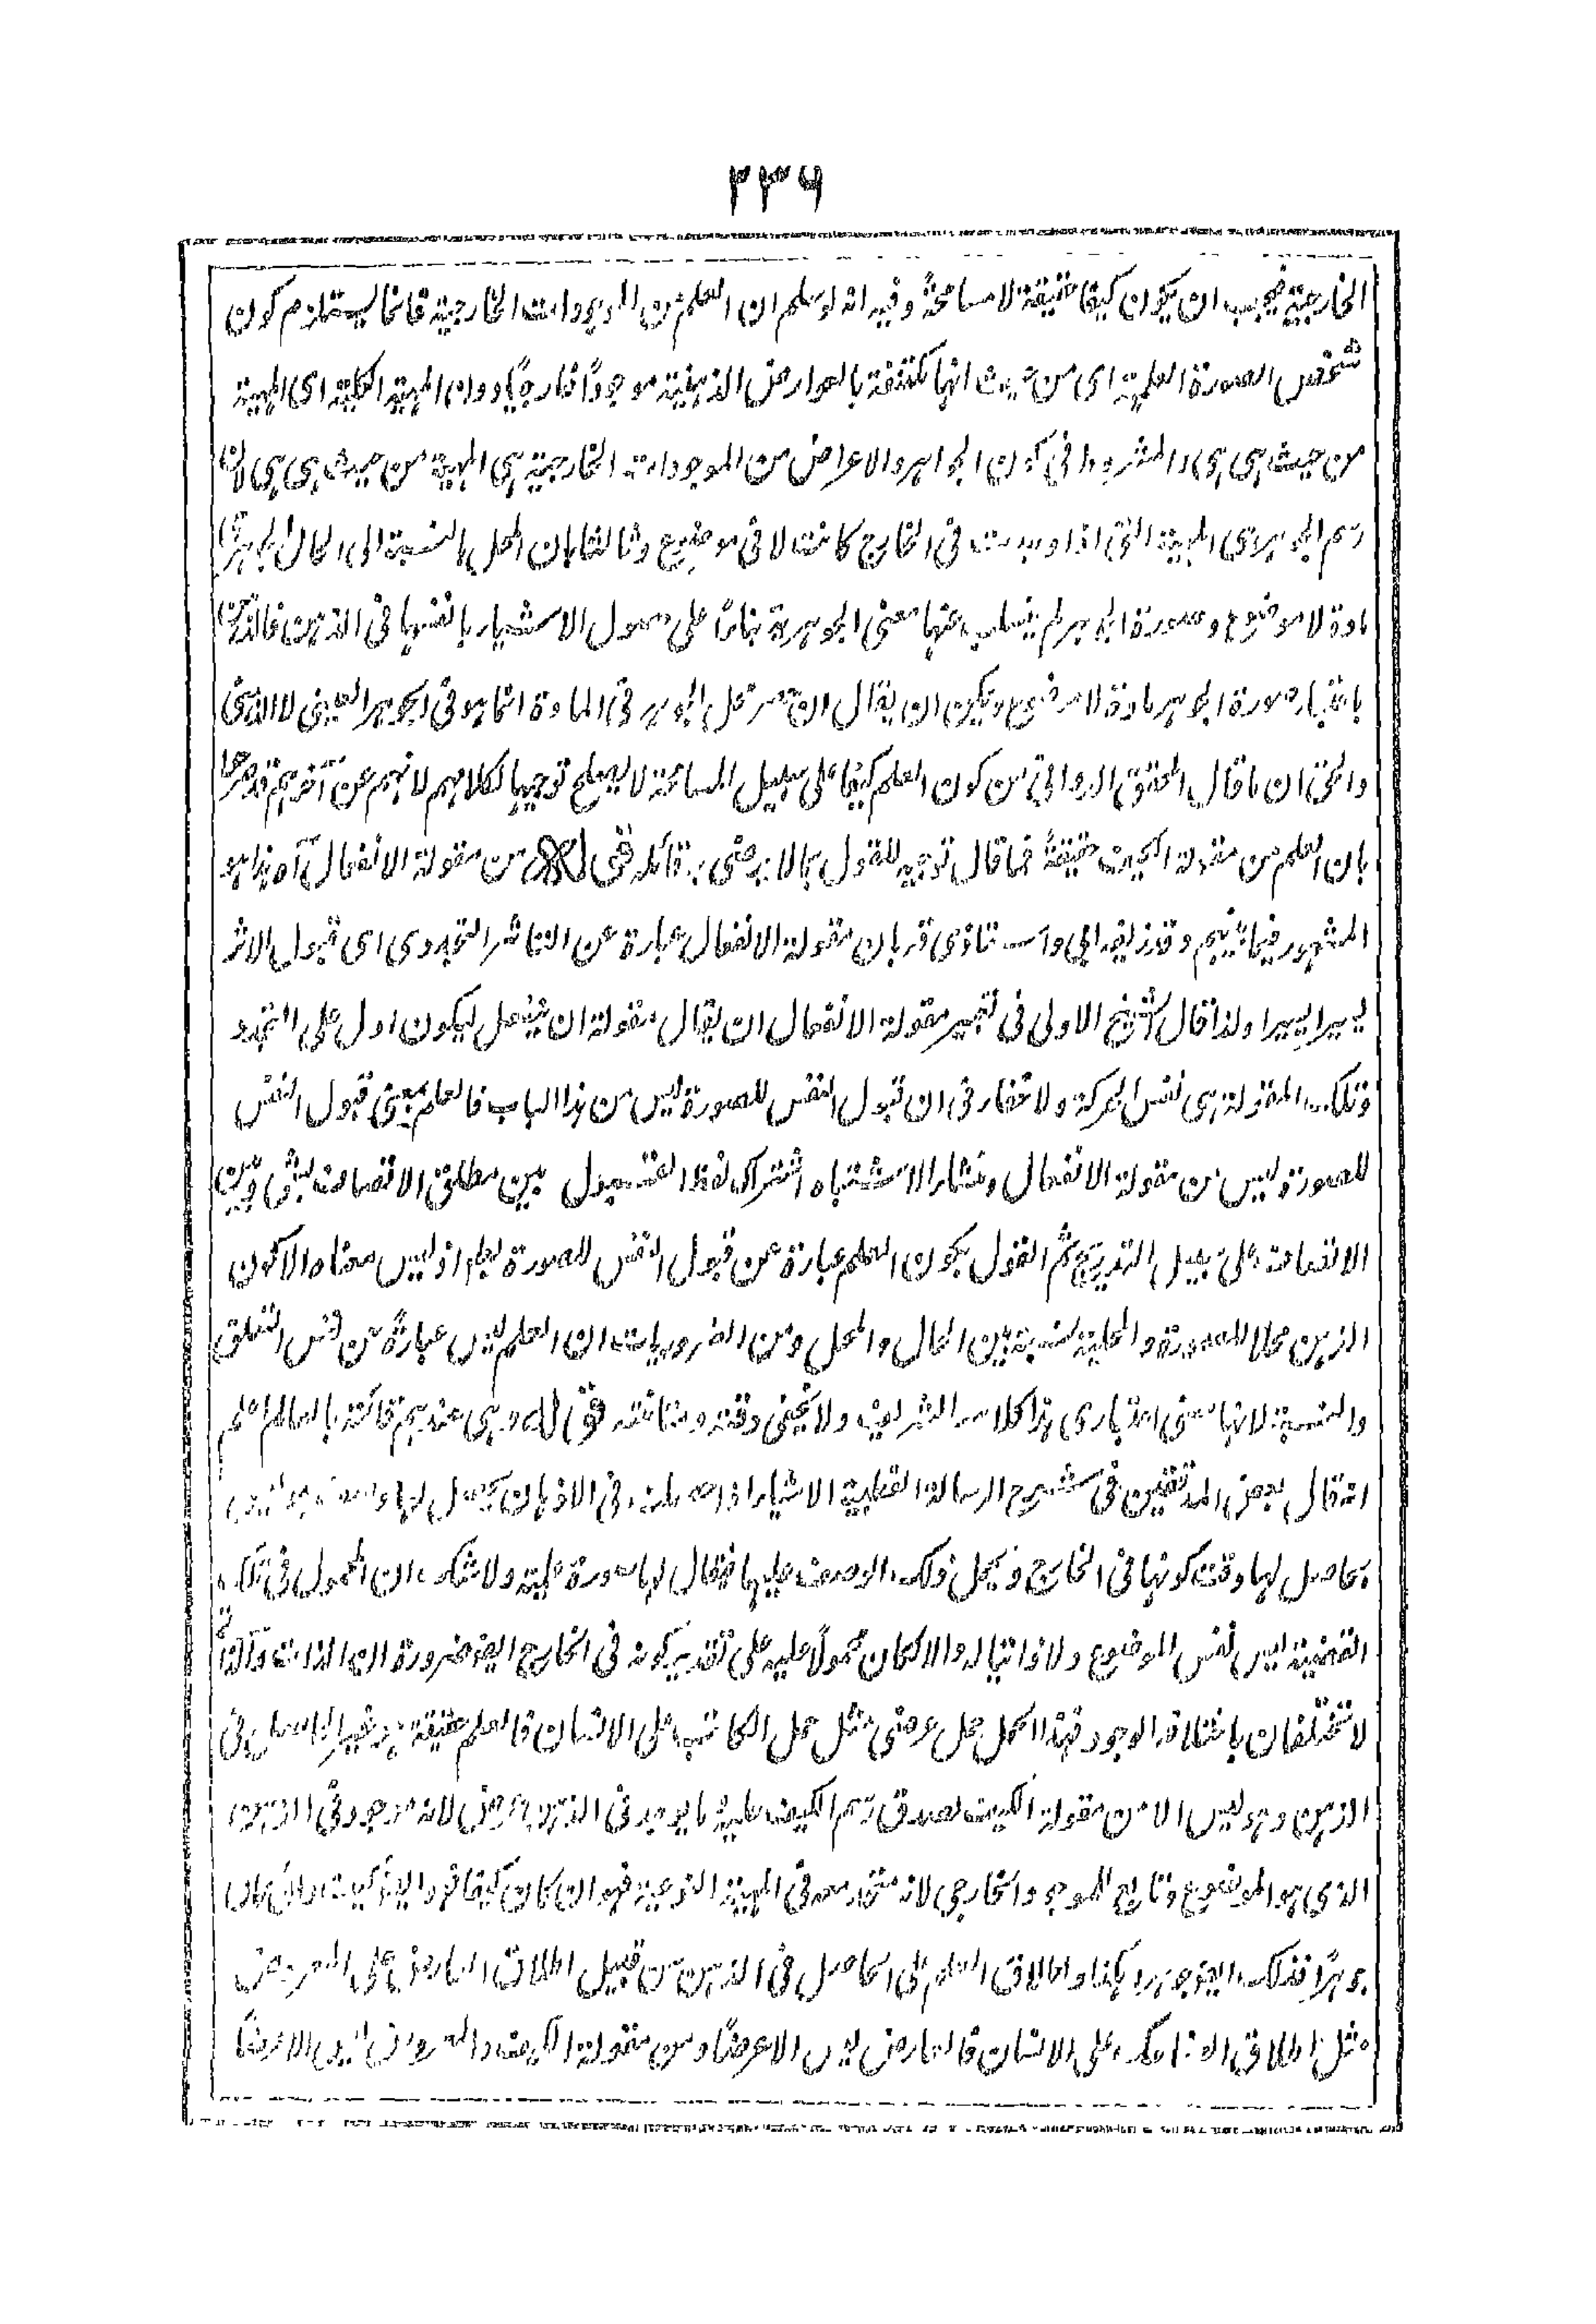 ۲۳۶
الخارجية فيجب ان يكون كيفا حقيقة لا مسامحةً وفيه انه لو سلم ان العلم من الموجودات الخارجية فانما يستلزم كون
شخص الصورة العلمية اى من حيث انها مكتنفة بالعوارض الذهنية موجوداً خارجيًا دون المهية الكلية اى المهية
من حيث هى هى والمشهور فى كون الجواهر والاعراض من الموجودات الخارجية هى المهية من حيث هى هى لان
رسم الجوهر اى المهية التى اذا وجدت فى الخارج كانت لا فى موضوع وثالثا بان المحل بالنسبة الى الحال الجوهرى
مادة لا موضوع وصورة الجوهر لم ينسلب عنها معنى الجوهرية بناءً على حصول الاشياء بانفسها فى الذهن فالذهن
باعتبار صورة الجوهر مادة لا موضوع ويمكن ان يقال ان حصر محل الجوهر فى المادة انما هو فى الجوهر العينى لا الذهنى
والحق ان ما قال المحقق الدوانى من كون العلم كيفا على سبيل المسامحة لا يصلح توجيها لكلامهم لانهم عن آخرهم قد صرحوا
بان العلم من مقولة الكيف حقيقةً فما قال توجيه للقول بما لا يرضى به قائله قوله من مقولة الانفعال آه هذا هو
المشهور فيما بينهم وقد زيفه ابى واستاذى قد بان مقولة الانفعال عبارة عن التاثر التجددى اى قبول الاثر
يسيرا يسيرا ولذا قال الشيخ الاولى فى تعبير مقولة الانفعال ان يقال مقولة ان ينفعل ليكون ادل على التجدد
وتلك المقولة هى نفس الحركة ولا خفاء فى ان قبول النفس للصورة ليس من هذا الباب فالعلم بمعنى قبول النفس
للصورة ليس من مقولة الانفعال ومنشاء الاشتباه اشتراك لفظ القبول بين مطلق الاتصاف بشئ وبين
الاتصاف على سبيل التدريج ثم القول بكون العلم عبارة عن قبول النفس للصورة باطل اذ ليس معناه الا كون
الذهن محلا للصورة والمحلية نسبة بين الحال والمحل ومن الضروريات ان العلم ليس عبارةً عن نفس التعلق
والنسبة لانها معنى اعتبارى هذا كلامه الشريف ولا يخفى دقته ومتانته قوله وهى عندهم قائمة بالعالم اعلم
انه قال بعض المدققين فى شرح الرسالة القطبية الاشياء اذا حصلت فى الاذهان يحصل لها وصف هو ليس
بحاصل لها وقت كونها فى الخارج ويحمل ذلك الوصف عليها فيقال لها صورة علمية ولا شك ان المحمول فى تلك
القضية ليس نفس الموضوع ولا ذاتيا له والا لكان محمولًا عليه على تقدير كونه فى الخارج ايضا ضرورة ان الذات والذاتى
لا تختلفان باختلاف الوجود فهذا الحمل حمل عرضى مثل حمل الكاتب على الانسان فالعلم حقيقة هو غير الحاصل فى
الذهن وهو ليس الا من مقولة الكيف لصدق رسم الكيف عليه ما يوجد فى الذهن عرض لانه موجود فى الذهن
الذى هو الموضوع وتابع للموجود الخارجى لانه متحد معه فى المهية النوعية فهو ان كان كيفا فهو ايضا كيف وان كان
جوهرًا فذلك ايضا جوهر وهكذا واطلاق العلم على الحاصل فى الذهن من قبيل اطلاق العارض على المعروض
مثل اطلاق الضاحك على الانسان فالعارض ليس الا عرضًا ومن مقولة الكيف والمعروض ليس الا عرضًا